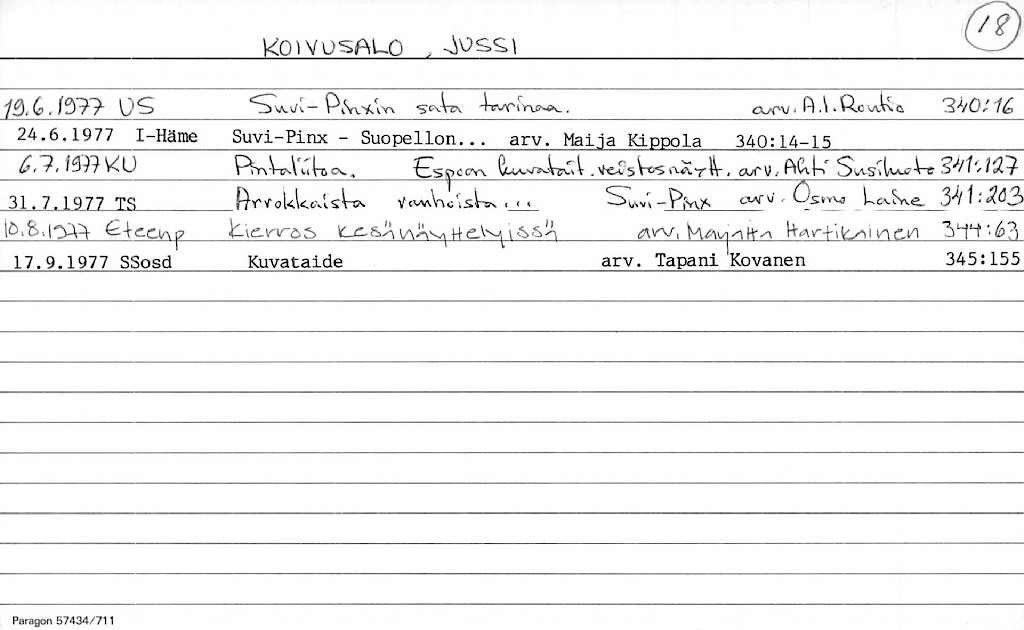 18
KOIVUSALO, JUSSI
19.6.1977 US Suvi-Pinxin sata tarinaa. arv. A.I.Routio 340:16
24.6.1977 I-Häme Suvi-Pinx - Suopellon... arv. Maija Kippola 340:14-15
6.7.1977 KU Pintaliitoa. Espoon kuvatait.veistosnäytt. arv. Ahti Susiluoto 341:127
31.7.1977 TS Arvokkaista vanhoista... Suvi-Pinx arv. Osmo Laine 341:203
10.8.1977 Eteenp Kierros kesänäyttelyissä arv. Marjatta Hartikainen 344:63
17.9.1977 SSosd Kuvataide arv. Tapani Kovanen 345:155
Paragon 57434/711